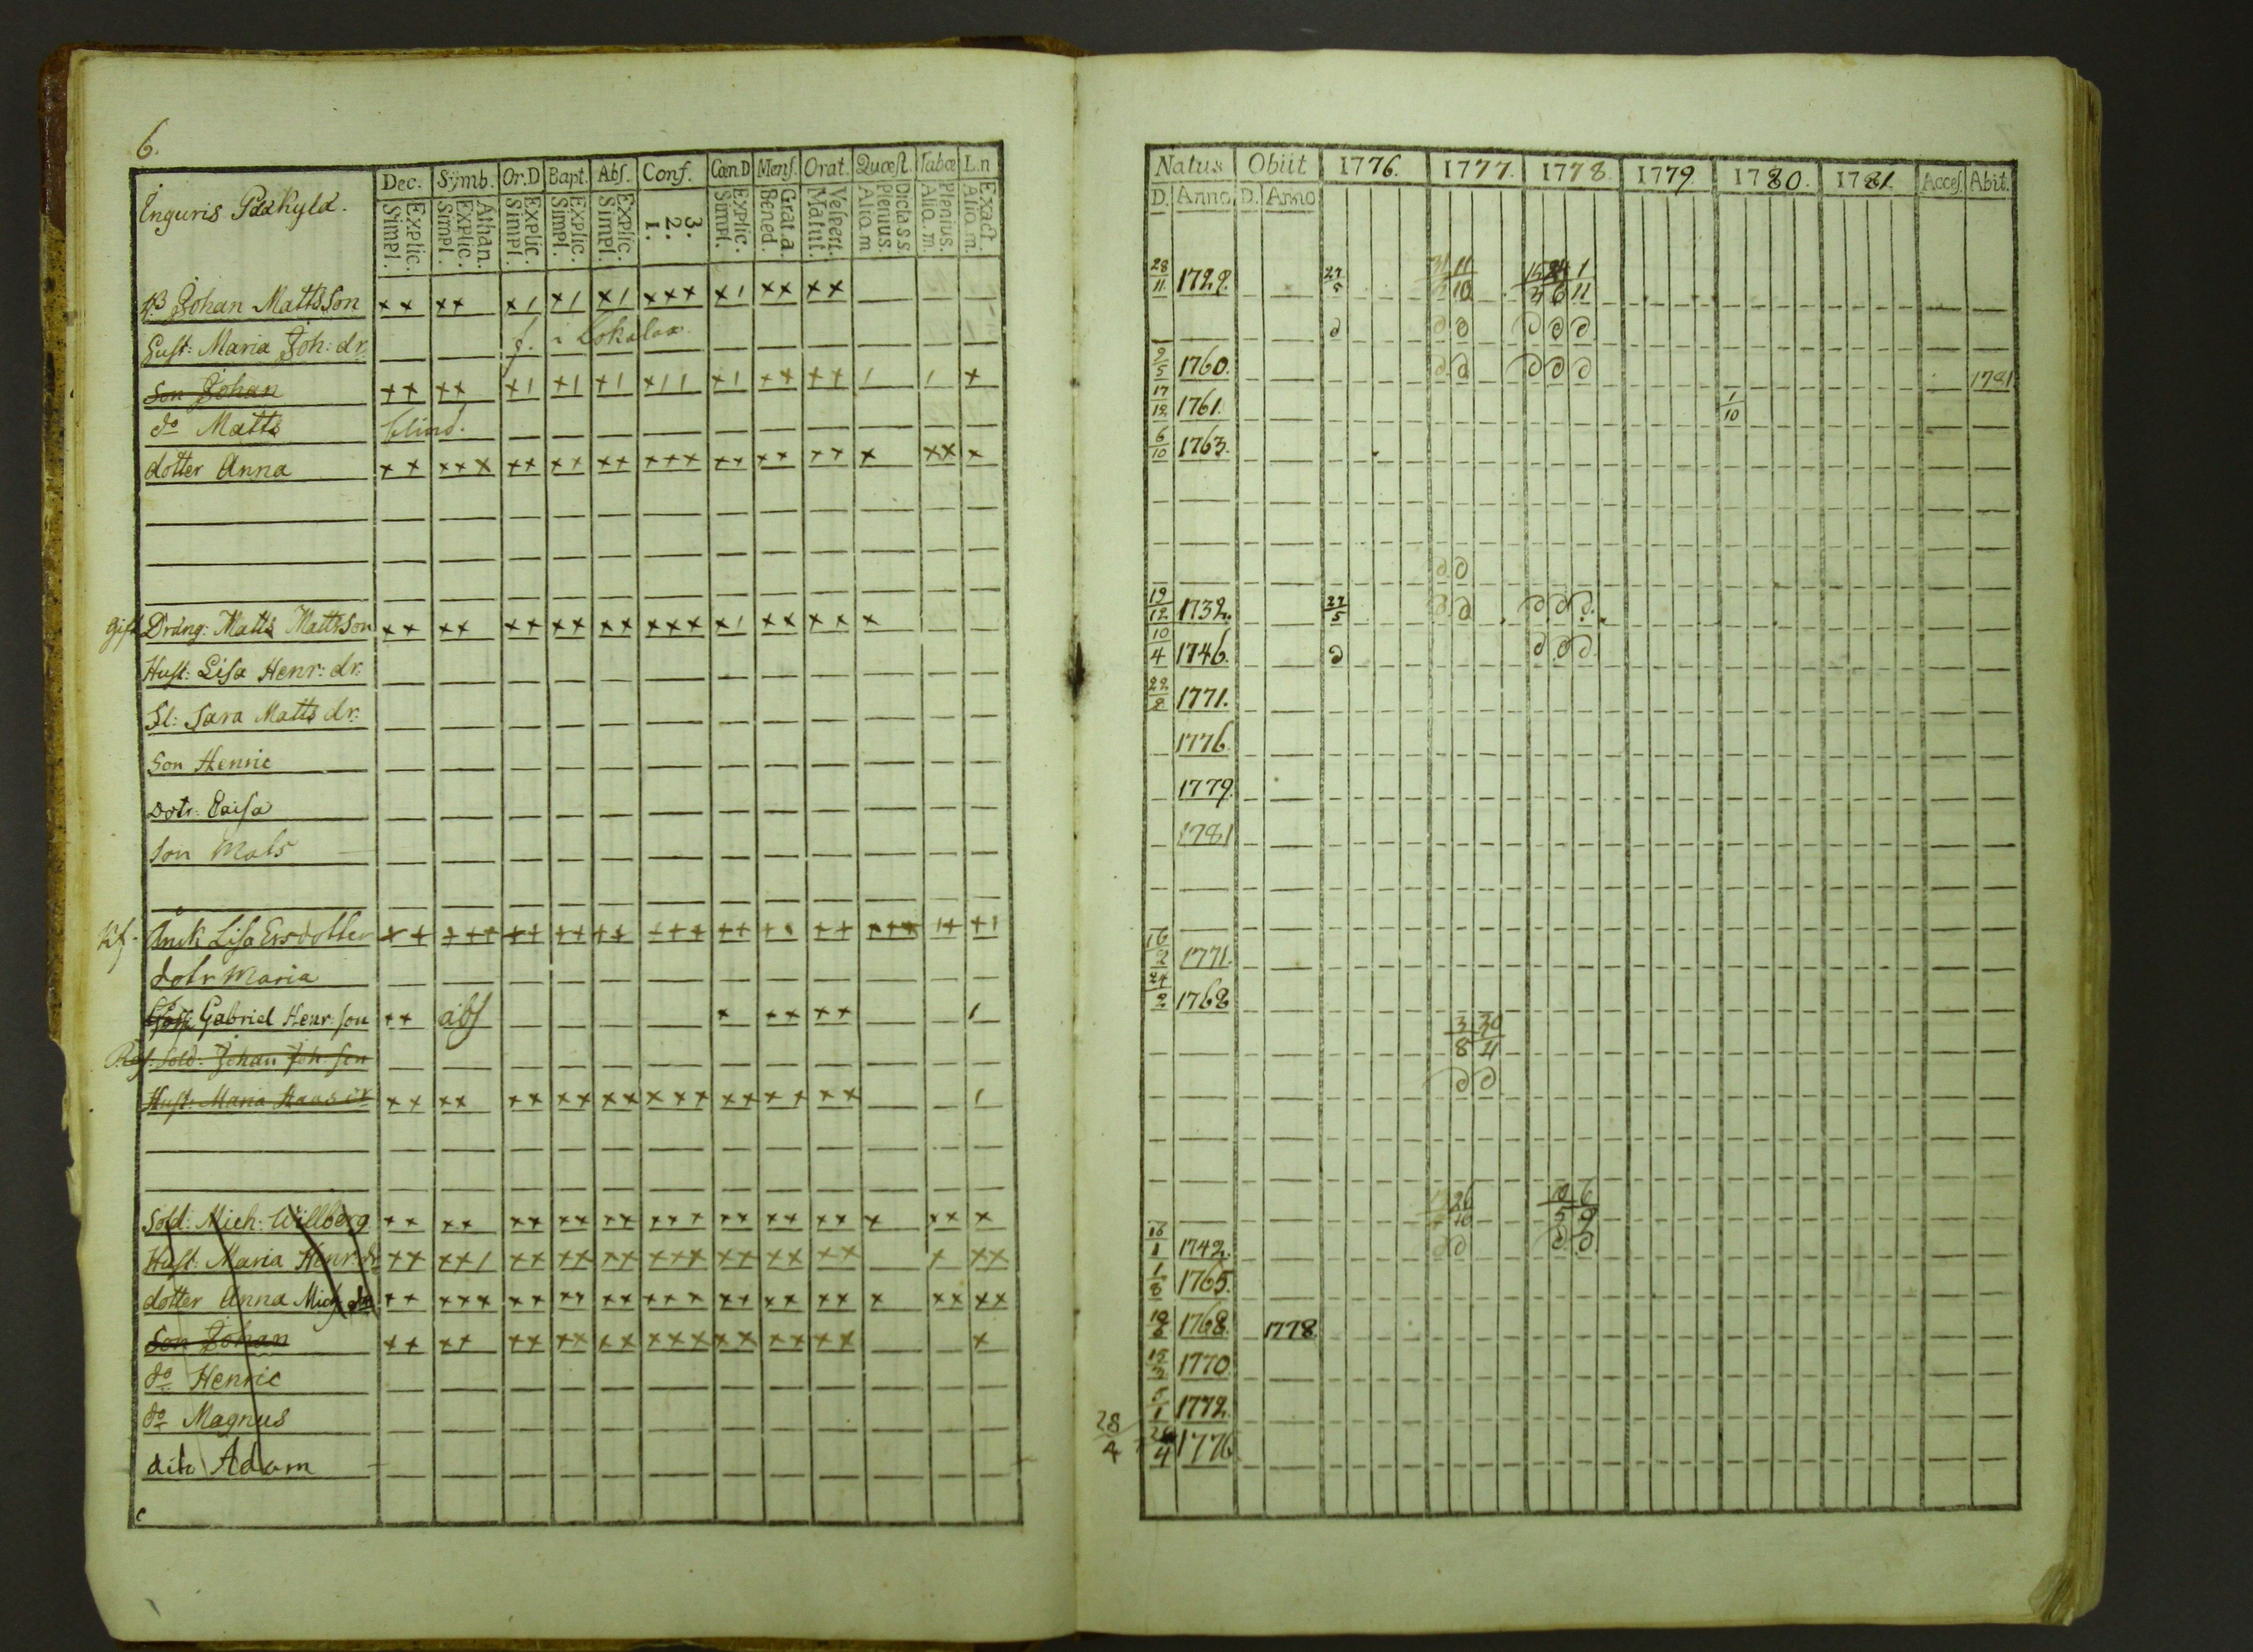 6.
Inguris Paakyld.
Dec. Symb. Or.D Bapt. Abs. Conf. Cœn.D Mens. Orat. Quæst. Tabæ L.n
Simpl. Explic. Simpl. Explic. Athan. Simpl. Explic. Simpl. Explic. Simpl. Explic. 1. 2. 3. Simpl. Explic. Bened. Grat.a. Matut. Vespert. Alio.m Plenius. Dicta s.s. Alio.m. Plenius. Alio.m. Exact.
Johan Mattsson ×× ×× ×1 ×1 ×1 ××× ×1 ×× ××
Hust: Maria Joh: dr. f. i Lokalax
Son Johan ×× ×× ×1 ×1 ×1 ×11 ×1 ×× ×× 1 1 ×
do Matts blind.
dotter Anna ×× ××× ×× ×× ×× ××× ×× ×× ×× × ×× ×
gift Dräng: Matts Mattsson ×× ×× ×× ×× ×× ××× ×1 ×× ×× ×
Hust: Lisa Henr: dr.
Sara Matts dr.
Son Henric
Dotr: Caisa
Son Mats
Änk Lisa Ersdotter ×× ××× ×× ×× ×× ××× ×× ×× ××
dotr Maria
Gabriel Henr: son ×× abs × ×× ×× 1
Sold: Johan Joh: son
Hust: Maria ×× ×× ×× ×× ×× ××× ×× ×× ×× 1
Sold: Mich: Willberg ×× ×× ×× ×× ×× ××× ×× ×× ×× × ×× ×
Hust: Maria Henr: dr ×× ××1 ×× ×× ×× ××× ×× ×× ×× × ××
dotter Anna Mich ×× ××× ×× ×× ×× ××× ×× ×× ×× × ×× ××
Son Johan ×× ×× ×× ×× ×× ××× ×× ×× ×× ×
do Henric
do Magnus
dito Adam
Natus Obiit 1776. 1777. 1778. 1779. 1780. 1781. Acces. Abit.
D. Anno D. Anno
28/11 1729. 27/5
9/5 1760. 1781
17/12 1761. 1/10
6/10 1763.
19/12 1732. 27/5
10/4 1746.
22/8 1771.
1776
1779.
1781
16/2 1771.
24/2 1762
3/8 30/4
10/5 6/9
16/1 1742.
1/8 1765.
1768. 1778.
15/3 1770
5/1 1772.
28/4 1776